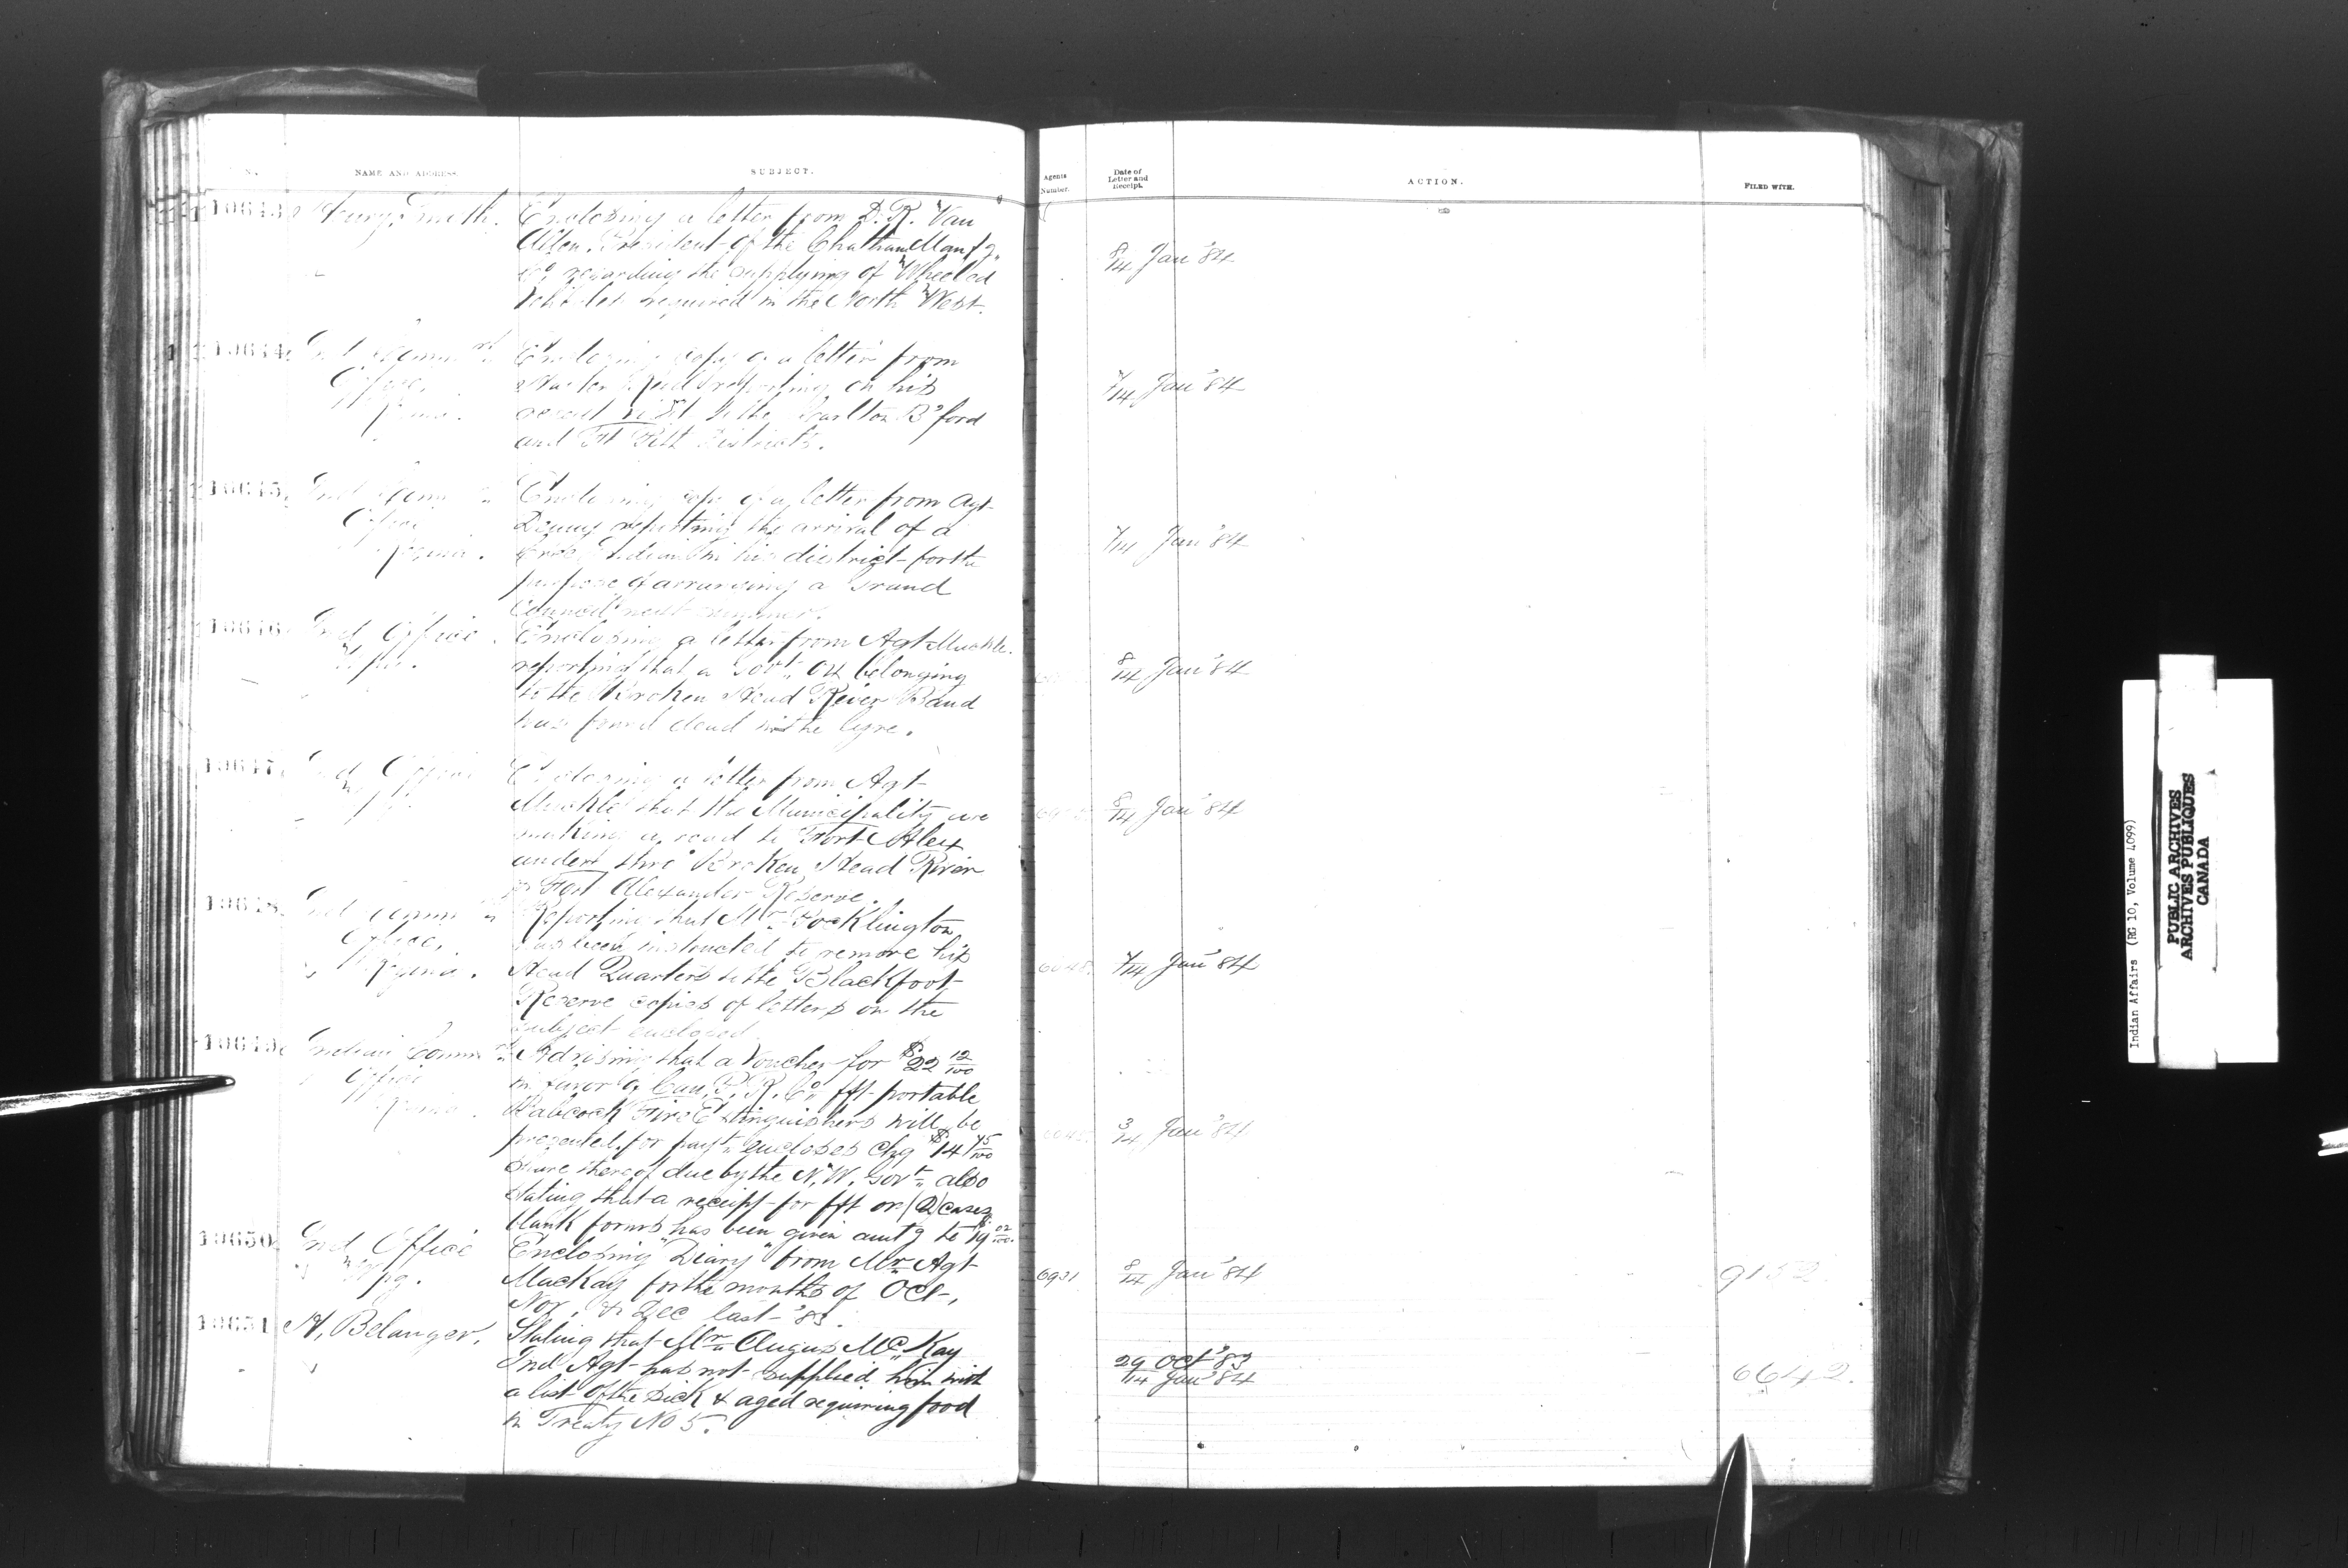 N.
NAME AND ADDRESS.
SUBJECT.
Agents Number.
Date of Letter and Receipt.
ACTION.
FILED WITH.
10643
Henry Smith.
Enclosing a letter from D. R. Van
Allen. President of the Chatham Manf'g.
Co. regarding the supplying of Wheeled
Vehicles required in the North West.
8/14 Jan '84
10644
Ind Comm
Office,
Regina.
Enclosing copy of a letter from
reporting on his
recent visit to the Carlton B'ford
and Ft Pitt Districts.
7/14 Jan '84
10645
Ind Comm
Office
Regina.
Enclosing copy of a letter from Agt
Denny reporting the arrival of a
Cree Indian in his district for the
purpose of arranging a Grand
Council next summer.
7/14 Jan '84
10646
Ind Office
Wpg.
Enclosing a letter from Agt Muckle.
reporting that a Govt. ox belonging
to the Broken Head River Band
was found dead in the
8/14 Jan '84
10647
Ind Office
Wpg.
Enclosing a letter from Agt
Muckle that the Municipality are
making a road to Fort Alex
and Broken Head River
Fort Alexander Reserve.
8/14 Jan '84
10648
Ind Comm
Office,
Regina.
Reporting that Mr. Pocklington
has been instructed to remove his
Head Quarters to the Blackfoot
Reserve copies of letters on the
subject enclosed.
7/14 Jan '84
10649
Indian Comm
Office
Regina.
Advising that a Voucher for $22 12/100
in favor of Can. P. R. Co. fft portable
Babcock Fire Extinguishers will be
presented for payt. encloses chq $14 75/100
share thereof due by the N. W. Govt. also
stating that a receipt for fft on (2) cases
blank forms has been given amt'g to $19 02/100.
3/14 Jan '84
10650
Ind Office
Wpg.
Enclosing "Diary" from Mr. Agt
MacKay for the months of Oct,
Nov. & Dec last '83.
6931
8/14 Jan '84
9152
10651
H. Belanger.
Stating that Mr. Angus McKay
Ind Agt has not supplied him with
a list of the sick & aged requiring food
in Treaty No 5.
29 Oct '83
/14 Jan '84
6642.
Indian Affairs (RG 10, Volume 4099)
PUBLIC ARCHIVES
ARCHIVES PUBLIQUES
CANADA